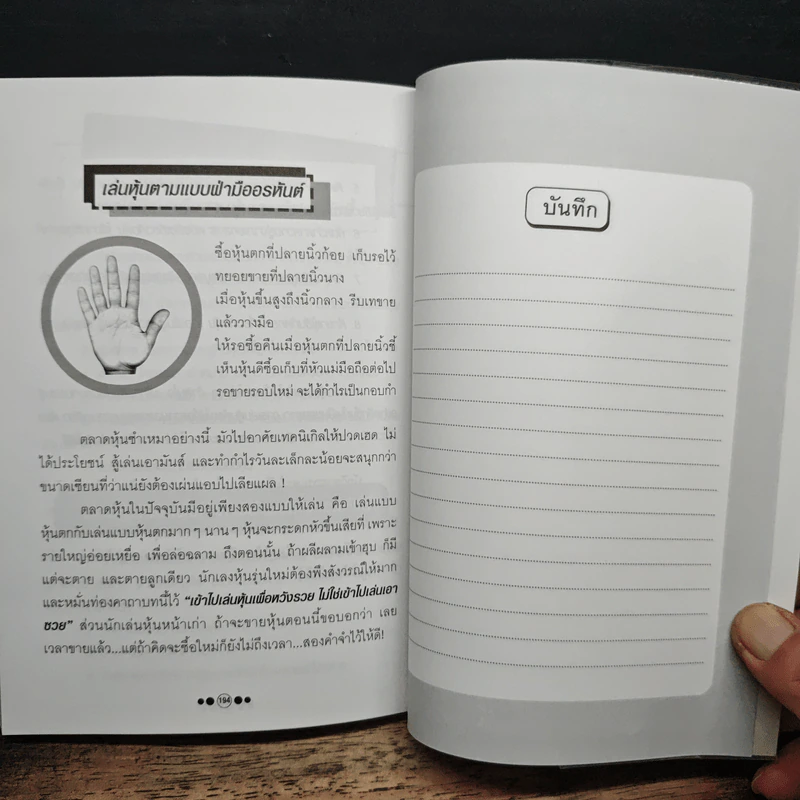 เล่นหุ้นตามแบบฝ่ามืออรหันต์
ซื้อหุ้นตกที่ปลายนิ้วก้อย เก็บรอไว้
ทยอยขายที่ปลายนิ้วนาง
เมื่อหุ้นขึ้นสูงถึงนิ้วกลาง รีบเทขาย
แล้ววางมือ
ให้รอซื้อคืนเมื่อหุ้นตกที่ปลายนิ้วชี้
เห็นหุ้นดีซื้อเก็บที่หัวแม่มือถือต่อไป
รอขายรอบใหม่ จะได้กำไรเป็นกอบกำ
ตลาดหุ้นซำเหมาอย่างนี้ มัวไปอาศัยเทคนิเกิลให้ปวดเฮด ไม่
ได้ประโยชน์ สู้เล่นเอามันส์ และทำกำไรวันละเล็กละน้อยจะสนุกกว่า
ขนาดเซียนที่ว่าแน่ยังต้องเผ่นแอบไปเลียแผล !
ตลาดหุ้นในปัจจุบันมีอยู่เพียงสองแบบให้เล่น คือ เล่นแบบ
หุ้นตกกับเล่นแบบหุ้นตกมาก ๆ นาน ๆ หุ้นจะกระดกหัวขึ้นเสียที เพราะ
รายใหญ่อ่อยเหยื่อ เพื่อล่อฉลาม ถึงตอนนั้น ถ้าผลีผลามเข้าฮุบ ก็มี
แต่จะตาย และตายลูกเดียว นักเลงหุ้นรุ่นใหม่ต้องพึงสังวรณ์ให้มาก
และหมั่นท่องคาถาบทนี้ไว้ “เข้าไปเล่นหุ้นเพื่อหวังรวย ไม่ใช่เข้าไปเล่นเอา
ซวย” ส่วนนักเล่นหุ้นหน้าเก่า ถ้าจะขายหุ้นตอนนี้ขอบอกว่า เลย
เวลาขายแล้ว...แต่ถ้าคิดจะซื้อใหม่ก็ยังไม่ถึงเวลา...สองคำจำไว้ให้ดี!
194
บันทึก